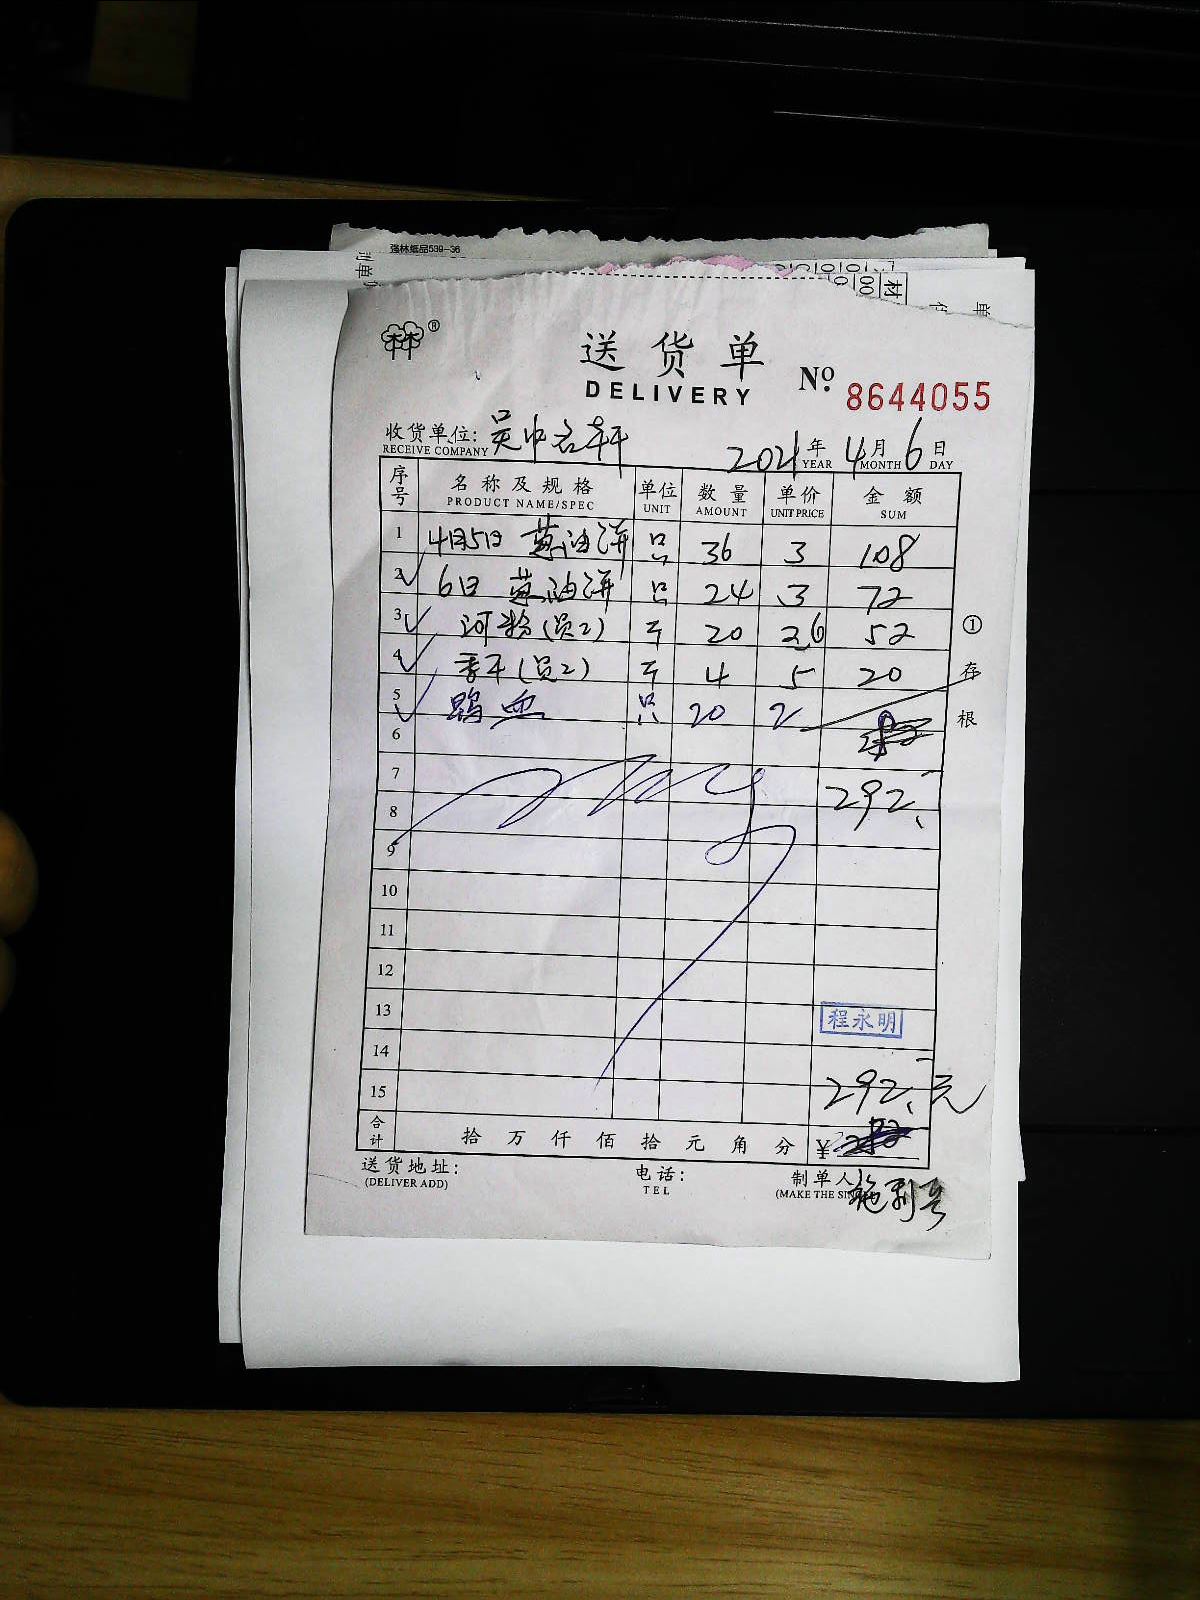 强林纸品539-36
送货单
DELIVERY
Nº. 8644055
收货单位: 吴中名轩
RECEIVE COMPANY
2021 年 4 月 6 日
YEAR MONTH DAY
序号 名称及规格 单位 数量 单价 金额
PRODUCT NAME/SPEC UNIT AMOUNT UNIT PRICE SUM
1 4月5日 葱油饼 只 36 3 108
2 6日 葱油饼 只 24 3 72
3 河粉(员2) 斤 20 2.6 52
4 香干(员2) 斤 4 5 20
5 鸭血 只 20 2
6
7 292
8
9
10
11
12
13 程永明
14
15 292元
合计 拾 万 仟 佰 拾 元 角 分 ¥
①存根
送货地址: 电话: 制单人
(DELIVER ADD) TEL (MAKE THE SIN